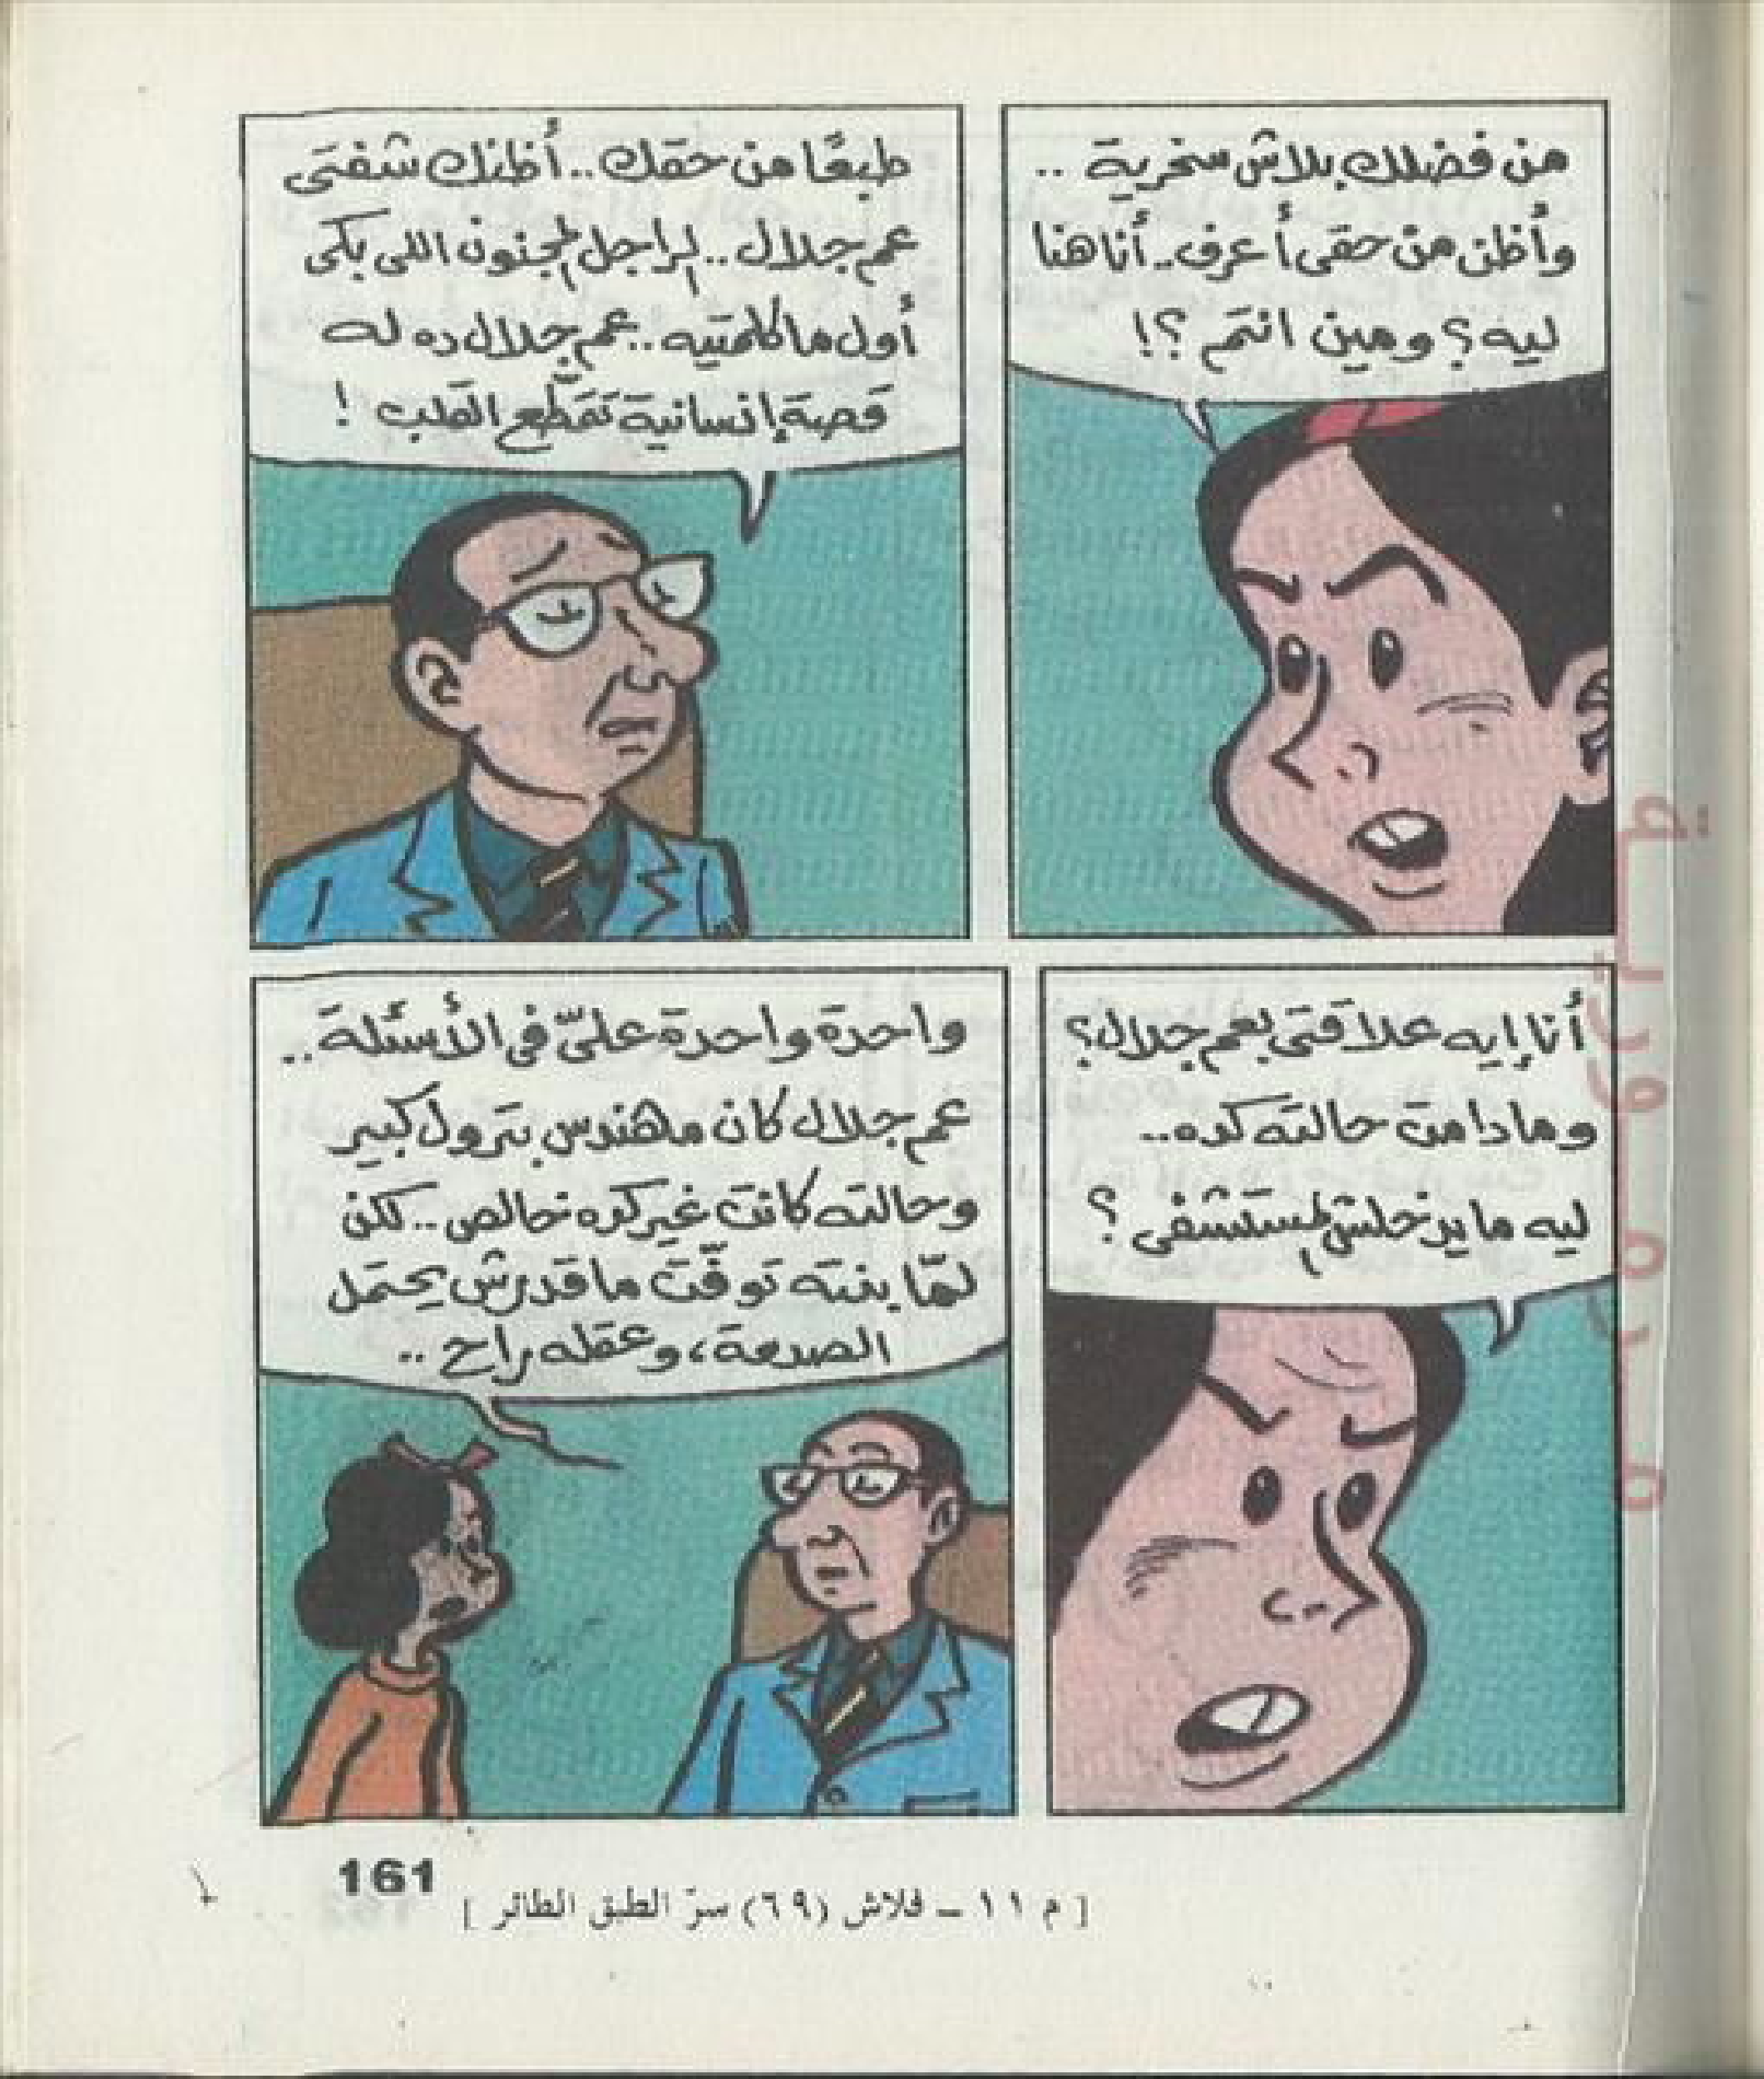 من فضلك بلاش سخرية ..
وأظن من حقى أعرف.. أنا هنا
ليه؟ ومين انتم ؟!
طبعًا من حقك.. أظنك شفتى
عم جلال.. الراجل المجنون اللى بكى
أول ما كلمتيه.. عم جلال ده له
قصة إنسانية تقطَّع القلب !
أنا إيه علاقتى بعم جلال؟
وما دامت حالته كده..
ليه ما يدخلش المستشفى ؟
واحدة واحدة علىّ فى الأسئلة..
عم جلال كان مهندس بترول كبير
وحالته كانت غير كده خالص.. لكن
لمّا بنته توفّت ما قدرش يحتمل
الصدمة، وعقله راح ..
161
[ م ١١ - فلاش (٦٩) سرّ الطبق الطائر ]